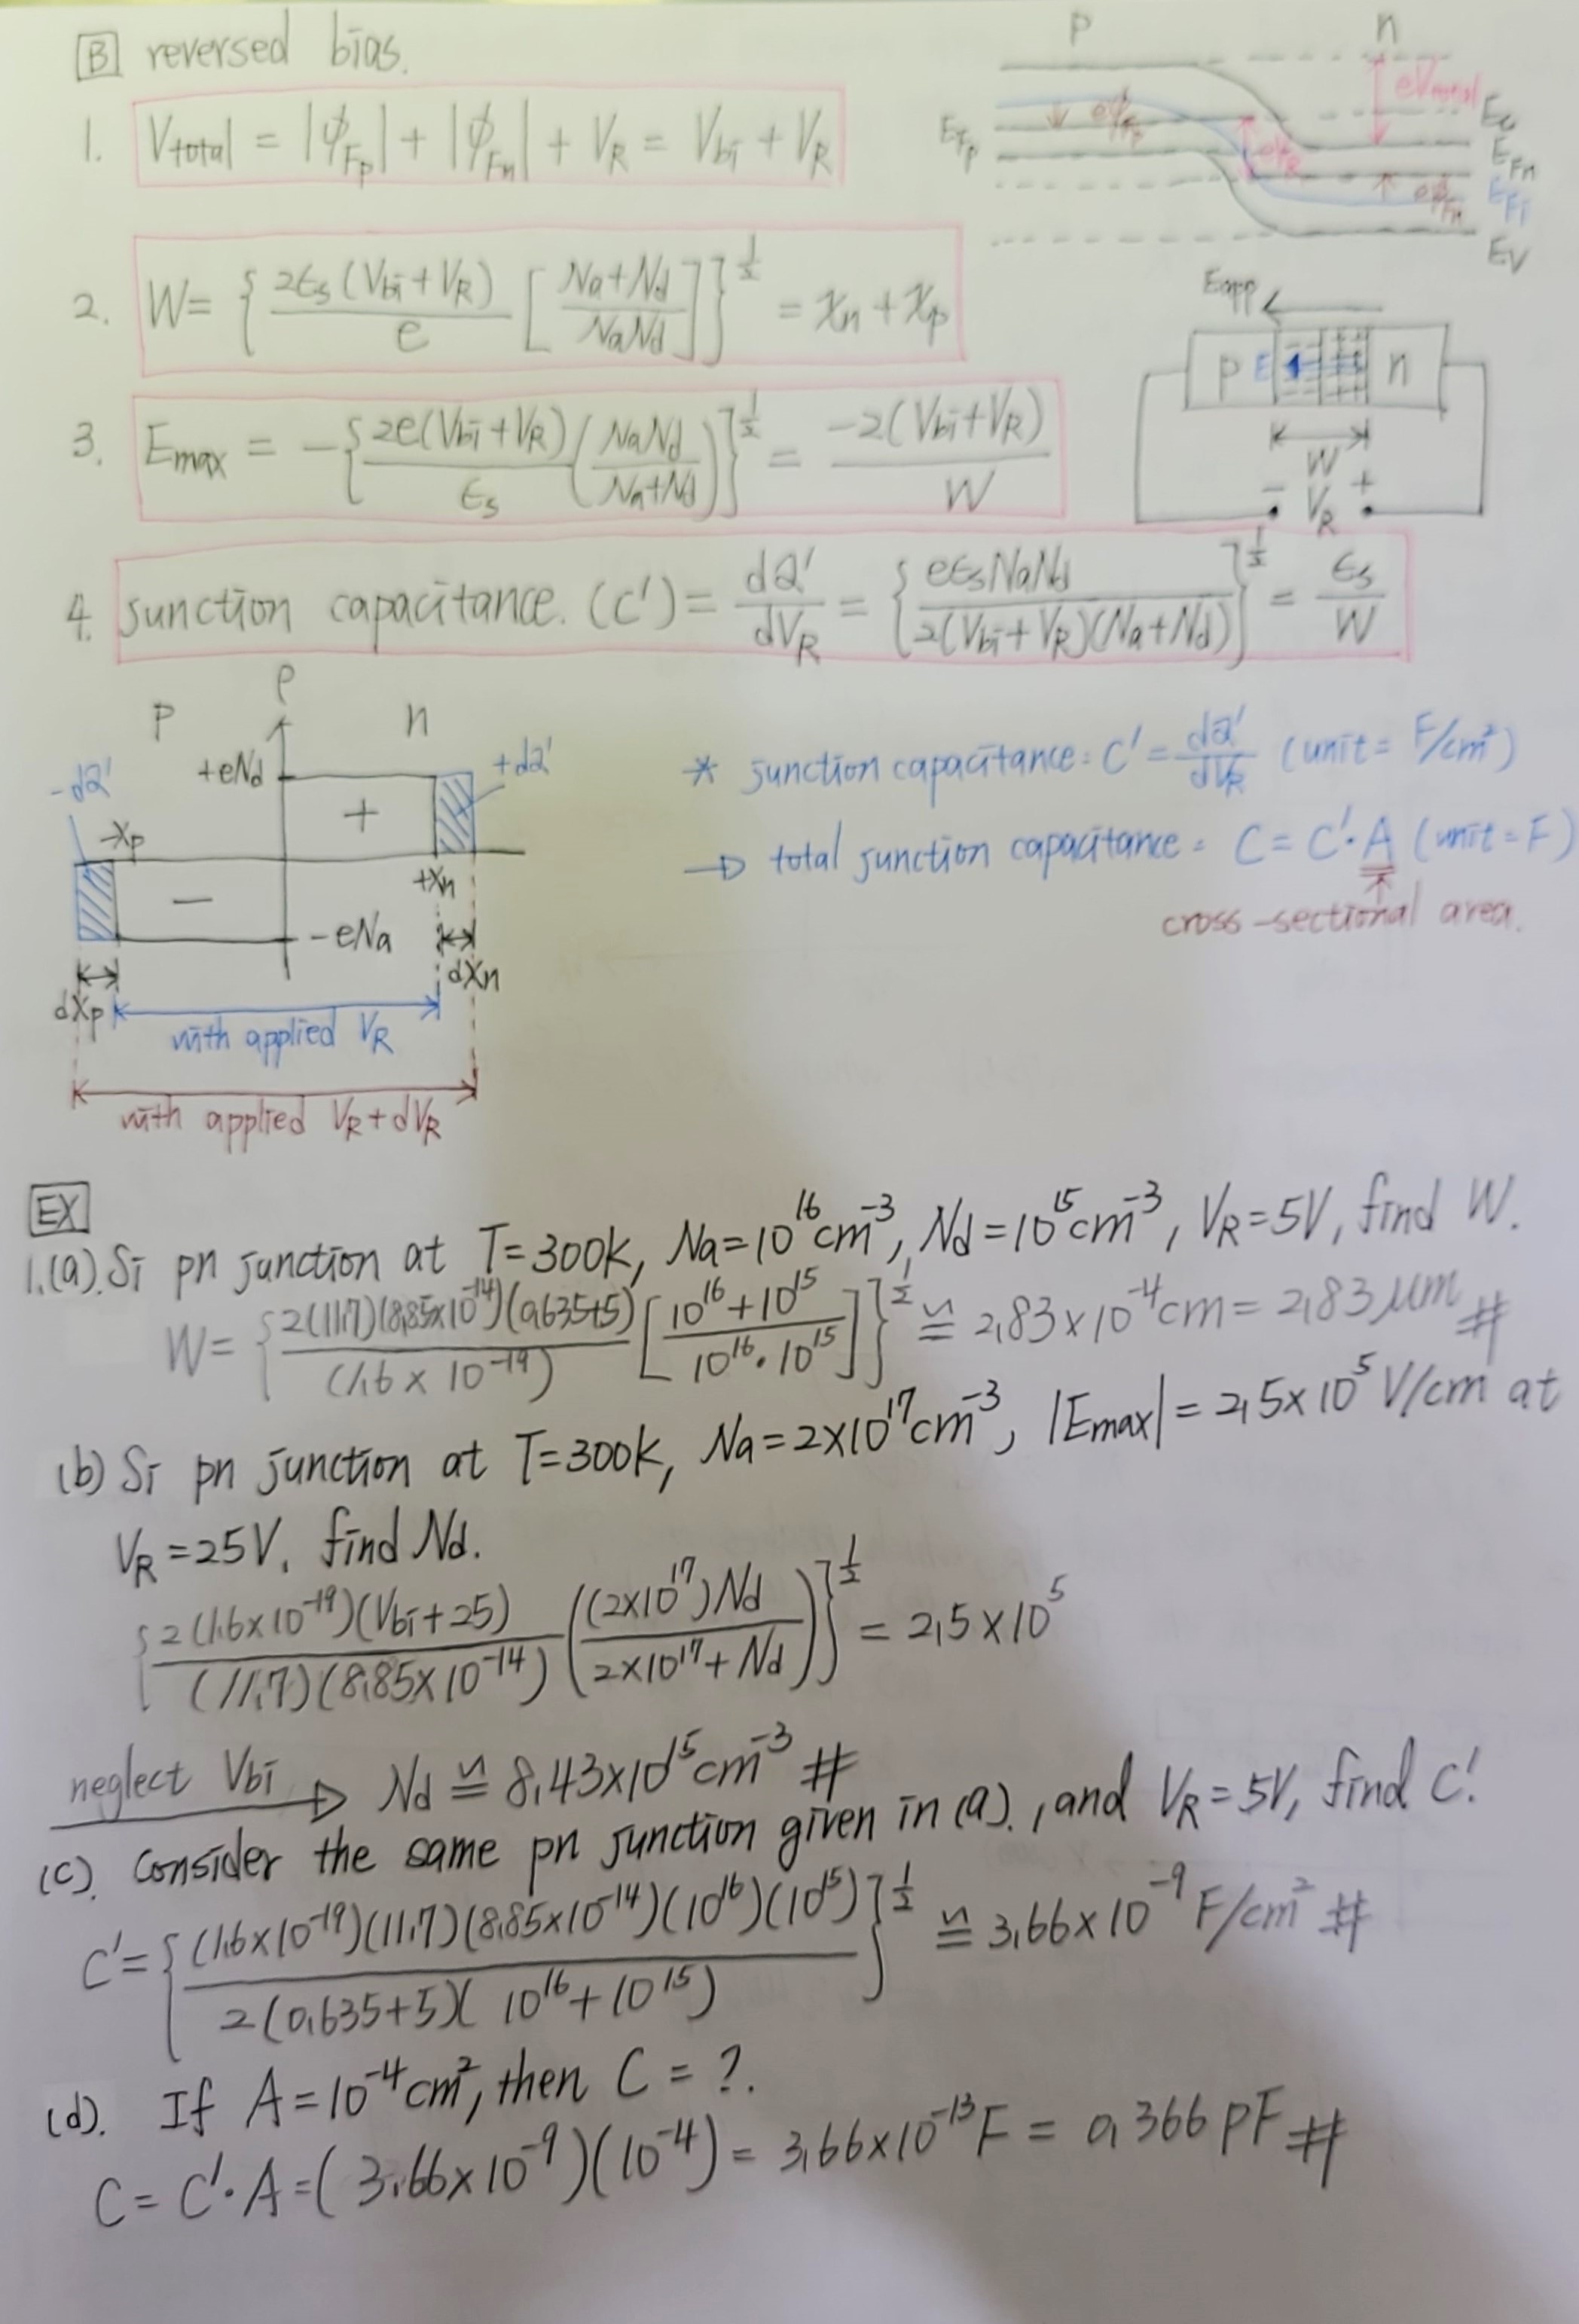 B reversed bias.
1. Vtotal = |ϕFp| + |ϕFn| + VR = Vbi + VR
p n
eVtotal
Ec
EFp eϕFp
EFn
eVR
EFi
eϕFn
Ev
2. W = { 2ϵs (Vbi + VR) / e [ Na+Nd / NaNd ] }^1/2 = xn + xp
Eapp
p E n
W
− VR +
3. Emax = −{ 2e(Vbi + VR) / ϵs ( NaNd / Na+Nd ) }^1/2 = −2(Vbi+VR) / W
4. junction capacitance. (C') = dQ' / dVR = { eϵsNaNd / 2(Vbi + VR)(Na+Nd) }^1/2 = ϵs / W
ρ
p n
+eNd
+dQ'
-dQ'
-xp
+
−
+xn
-eNa
dxn
dxp
with applied VR
with applied VR + dVR
* junction capacitance: C' = dQ' / dVR (unit = F/cm²)
→ total junction capacitance = C = C'·A (unit = F)
cross-sectional area.
EX
1.(a). Si pn junction at T=300k, Na=10^16 cm^-3, Nd=10^15 cm^-3, VR=5V, find W.
W = { 2(11.7)(8.85x10^-14)(0.635+5) / (1.6 x 10^-19) [ 10^16 + 10^15 / 10^16 · 10^15 ] }^1/2 ≌ 2.83 x 10^-4 cm = 2.83 μm #
(b) Si pn junction at T=300k, Na=2x10^17 cm^-3, |Emax| = 2.5x10^5 V/cm at
VR = 25V, find Nd.
{ 2(1.6x10^-19)(Vbi+25) / (11.7)(8.85x10^-14) ( (2x10^17)Nd / 2x10^17 + Nd ) }^1/2 = 2.5 x 10^5
neglect Vbi → Nd ≌ 8.43x10^15 cm^-3 #
(c). Consider the same pn junction given in (a)., and VR = 5V, find C'.
C' = { (1.6x10^-19)(11.7)(8.85x10^-14)(10^16)(10^15) / 2(0.635+5)(10^16 + 10^15) }^1/2 ≌ 3.66x10^-9 F/cm² #
(d). If A = 10^-4 cm², then C = ?.
C = C'·A = (3.66x10^-9)(10^-4) = 3.66x10^-13 F = 0.366 pF #